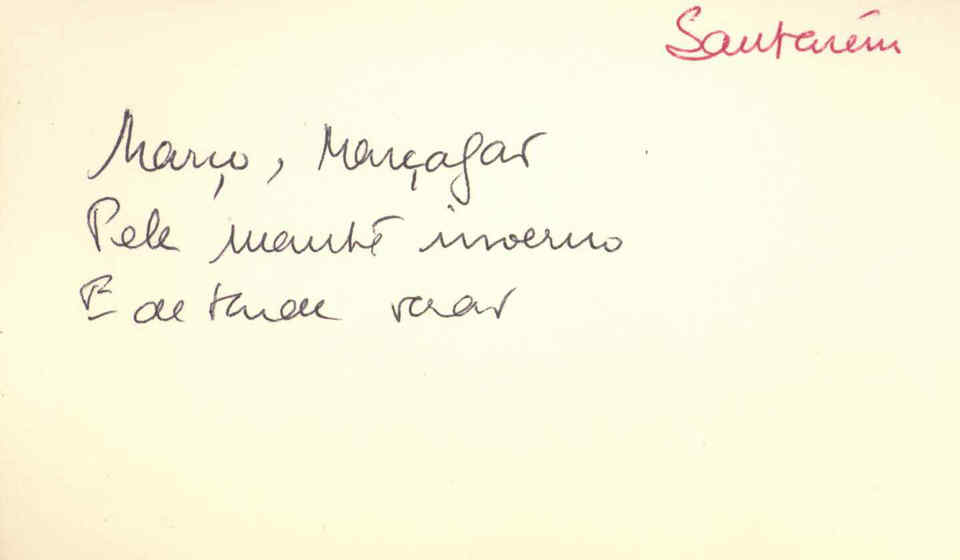 Santarém
Março, Marçagão
Pela manhã inverno
E de tarde verão